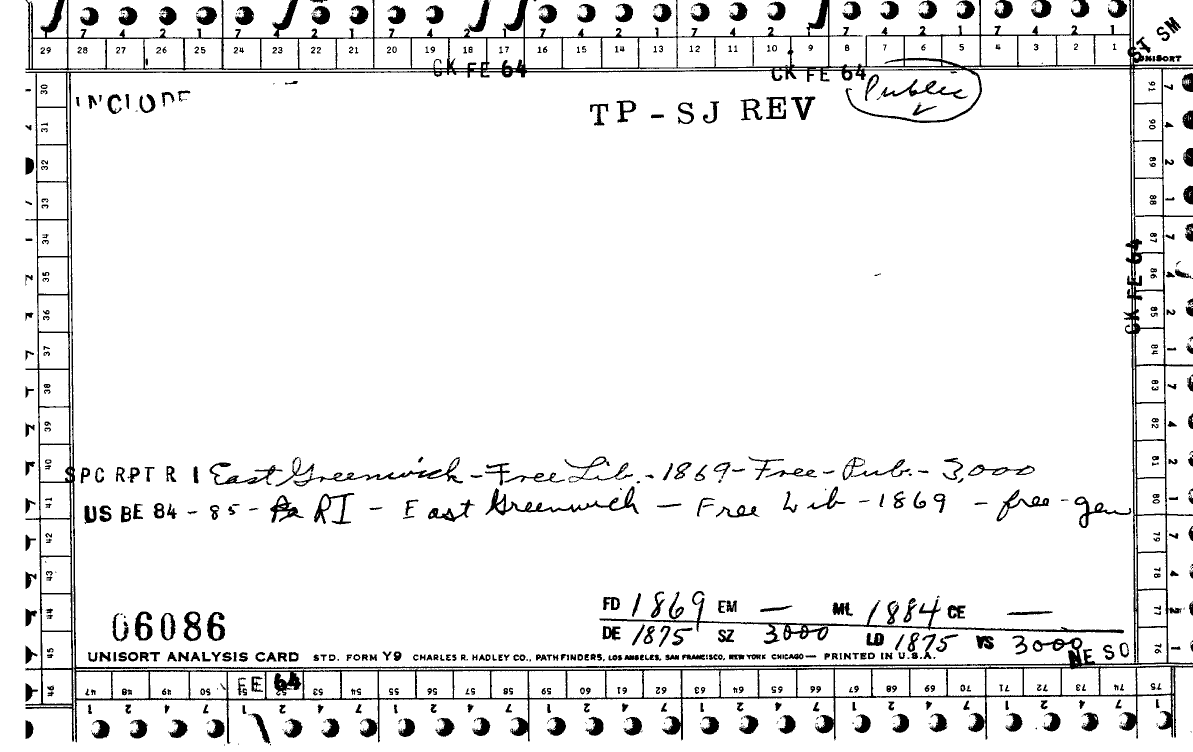 7 4 2 1 7 4 2 1 7 4 2 1 7 4 2 1 7 4 2 1 7 4 2 1
29 28 27 26 25 24 23 22 21 20 19 18 17 16 15 14 13 12 11 10 9 8 7 6 5 4 3 2 1
ST SM
UNISORT
CK FE 64 CK FE 64
INCLUDE
TP - SJ REV Public
30 31 32 33 34 35 36 37 38 39 40 41 42 43 44 45 46
91 90 89 88 87 86 85 84 83 82 81 80 79 78 77 76
CK FE 64
SPC RPT R I East Greenwich - Free Lib. - 1869 - Free - Pub. - 3,000
US BE 84 - 85 - RI - East Greenwich - Free Lib - 1869 - free - gen
FD 1869 EM — ML 1884 CE —
06086
DE 1875 SZ 3000 LD 1875 VS 3000
NE SO
UNISORT ANALYSIS CARD STD. FORM Y9 CHARLES R. HADLEY CO., PATHFINDERS, LOS ANGELES, SAN FRANCISCO, NEW YORK CHICAGO — PRINTED IN U.S.A.
FE 64
47 48 49 50 51 52 53 54 55 56 57 58 59 60 61 62 63 64 65 66 67 68 69 70 71 72 73 74 75
1 2 4 7 1 2 4 7 1 2 4 7 1 2 4 7 1 2 4 7 1 2 4 7 1 2 4 7 1